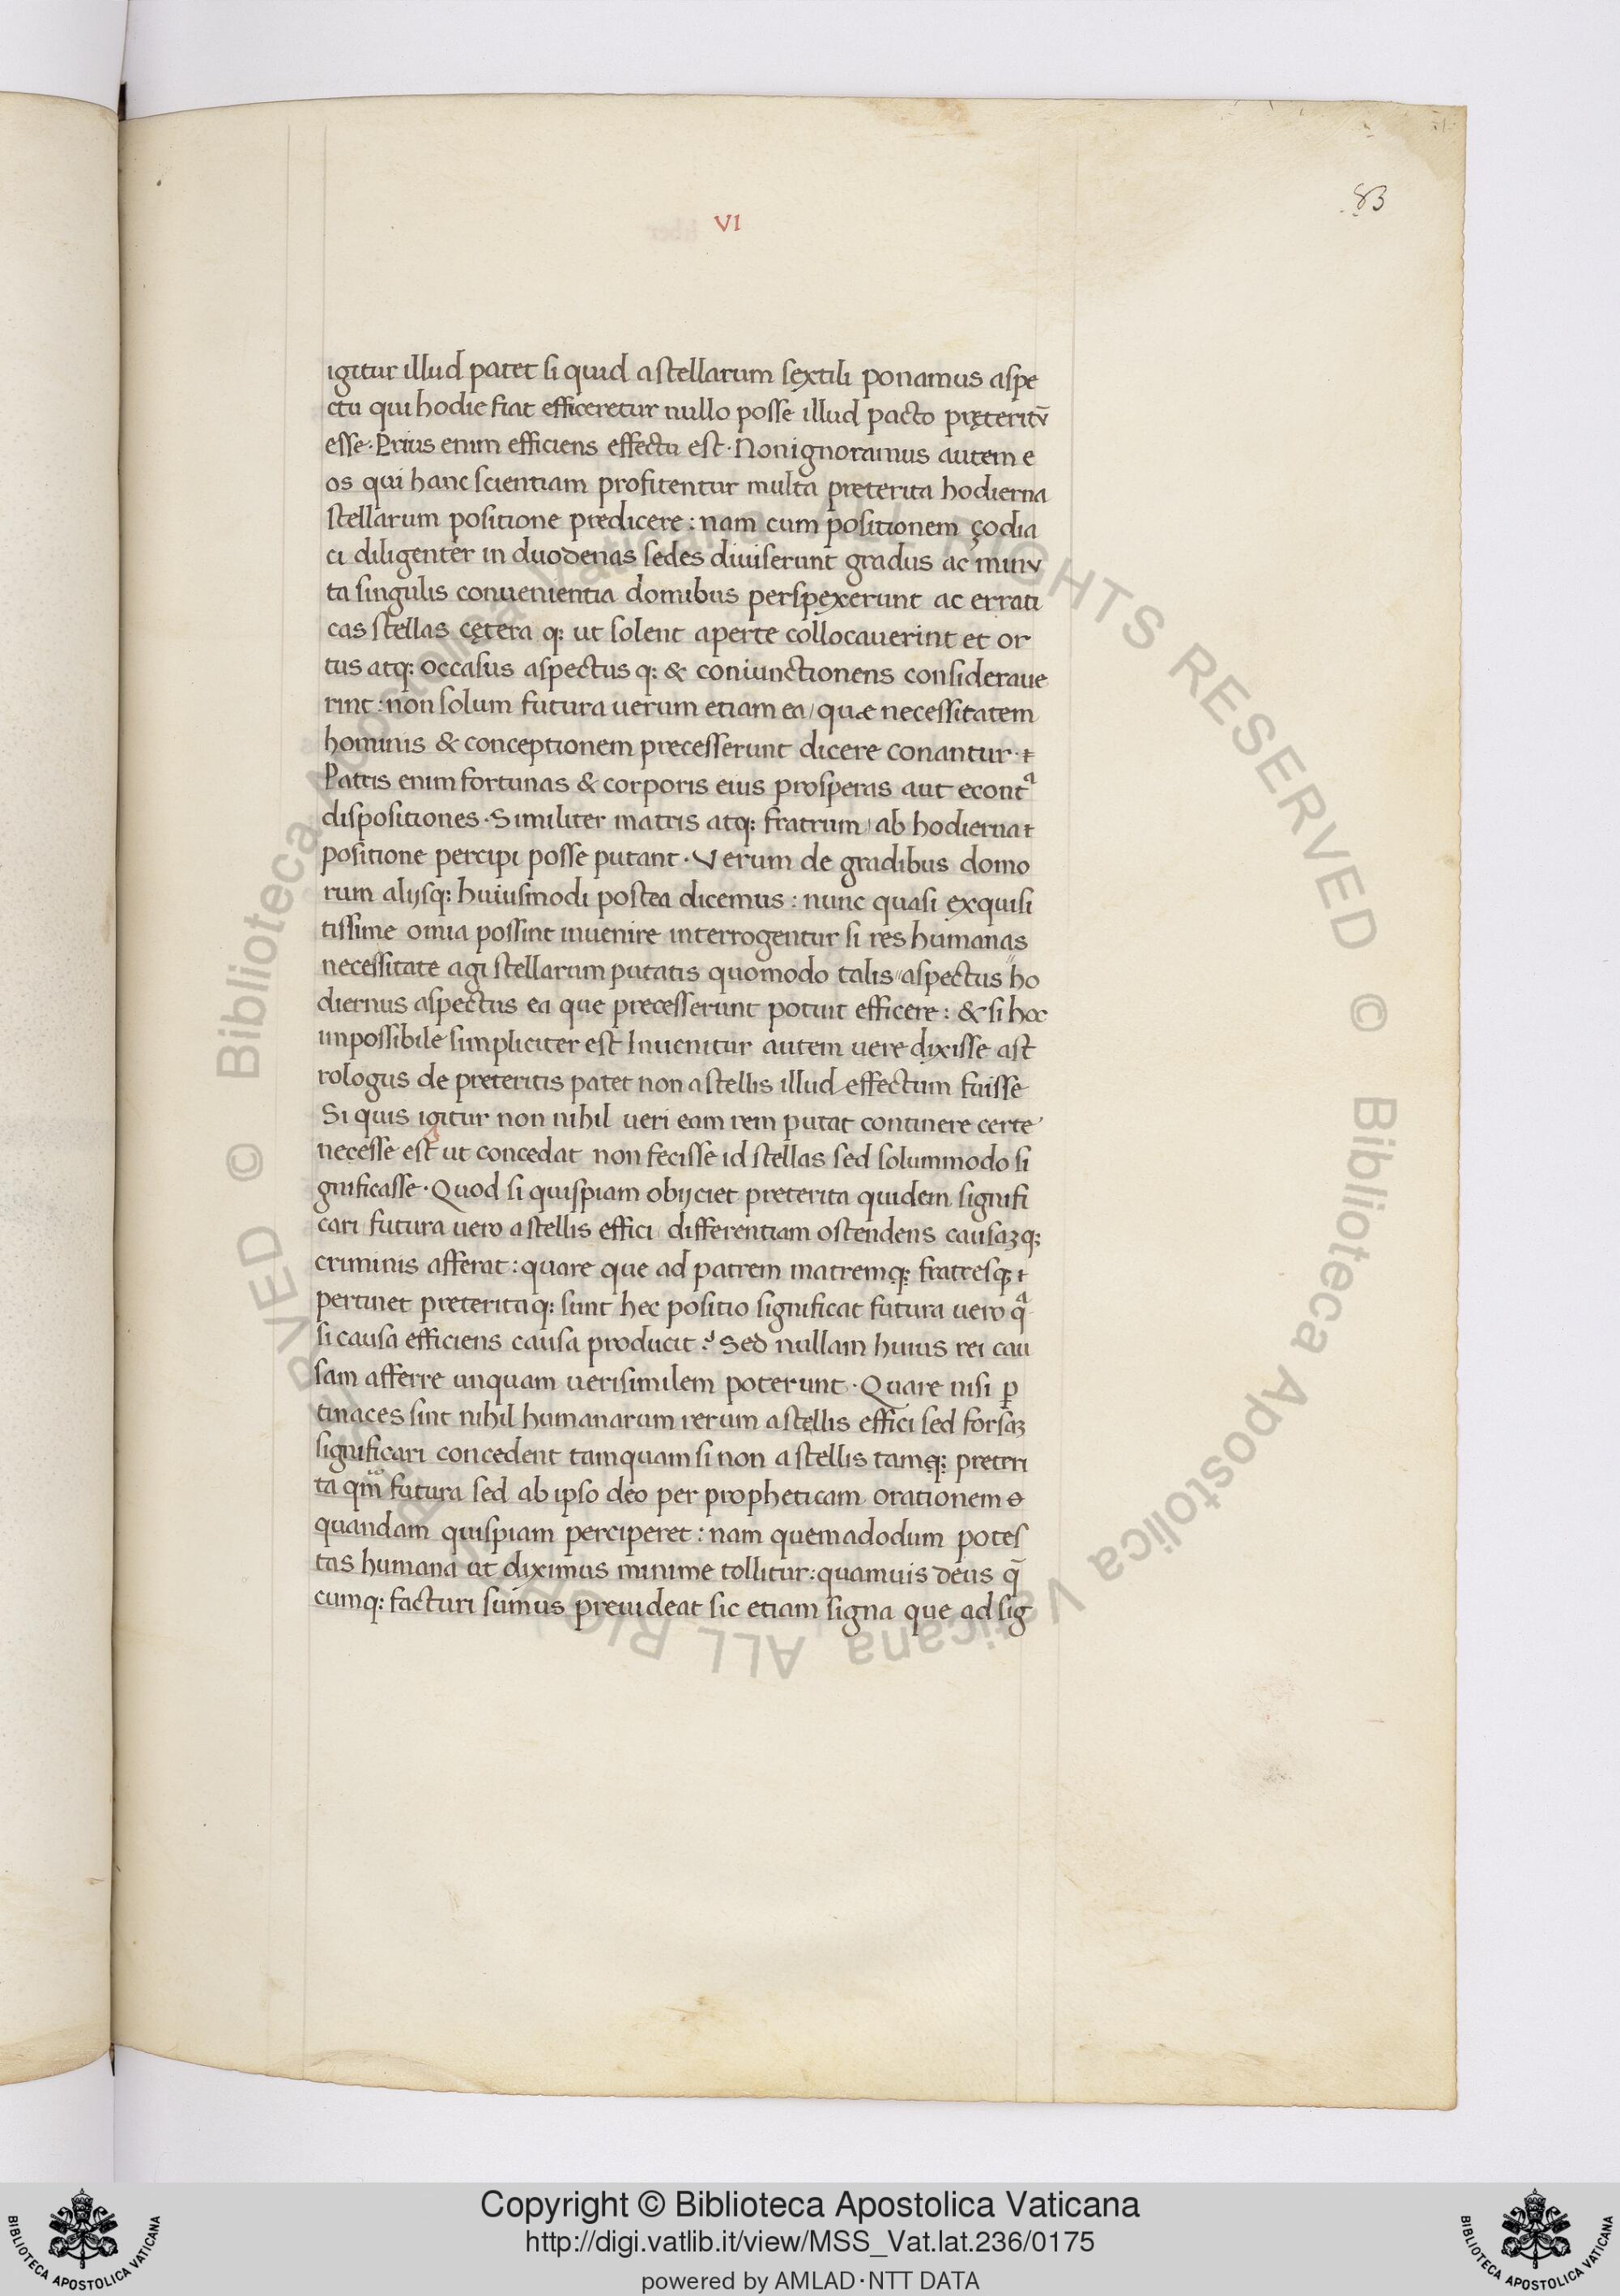 83
VI
igitur illud patet si quid a stellarum sextili ponamus aspe
ctu qui hodie fiat efficeretur nullo posse illud pacto pręteritū
esse · Prius enim efficiens effectu est · Non ignoramus autem e
os qui hanc scientiam profitentur multa preterita hodierna
stellarum positione predicere : nam cum positionem çodia
ci diligenter in duodenas sedes diuiserunt gradus ac minu
ta singulis conuenientia domibus perspexerunt ac errati
cas stellas cętera q: ut solent aperte collocauerint et or
tus atq: occasus aspectus q: & coniunctionens consideraue
rint : non solum futura uerum etiam ea / quæ necessitatem
hominis & conceptionem precesserunt dicere conantur ·
Patris enim fortunas & corporis eius prosperas aut econtª
dispositiones · Similiter matris atq: fratrum / ab hodierna
positione percipi posse putant · Verum de gradibus domo
rum alijsq: huiusmodi postea dicemus : nunc quasi exquisi
tissime omia possint inuenire interrogentur si res humanas
necessitate agi stellarum putatis quomodo talis // aspectus // ho
diernus aspectus ea que precesserunt potuit efficere : & si hoc
impossibile simpliciter est Inuenitur autem uere dixisse ast
rologus de preteritis patet non a stellis illud effectum fuisse
Si quis igitur non nihil ueri eam rem putat continere certe
necesse est ut concedat non fecisse id stellas sed solummodo si
gnificasse · Quod si quispiam obijciet preterita quidem signifi
cari futura uero a stellis effici / differentiam ostendens causaꝫ q:
criminis afferat : quare que ad patrem matremq: fratresq:
pertinet preterita q: sunt hec positio significat futura uero qª
si causa efficiens causa producit ? Sed nullam huius rei cau
sam afferre unquam uerisimilem poterunt · Quare nisi ꝑ
tinaces sint nihil humanarum rerum a stellis effici sed forsaꝫ
significari concedent tamquam si non a stellis tamq: preteri
ta qm̄ futura sed ab ipso deo per propheticam orationem
quandam quispiam perciperet : nam quemadodum potes
tas humana ut diximus minime tollitur : quamuis deus q̄
cumq: facturi sumus preuideat sic etiam signa que ad sig
© Biblioteca Apostolica Vaticana ALL RIGHTS RESERVED © Biblioteca Apostolica Vaticana ALL RIGHTS RESERVED
Copyright © Biblioteca Apostolica Vaticana
http://digi.vatlib.it/view/MSS_Vat.lat.236/0175
powered by AMLAD·NTT DATA
BIBLIOTECA APOSTOLICA VATICANA
BIBLIOTECA APOSTOLICA VATICANA